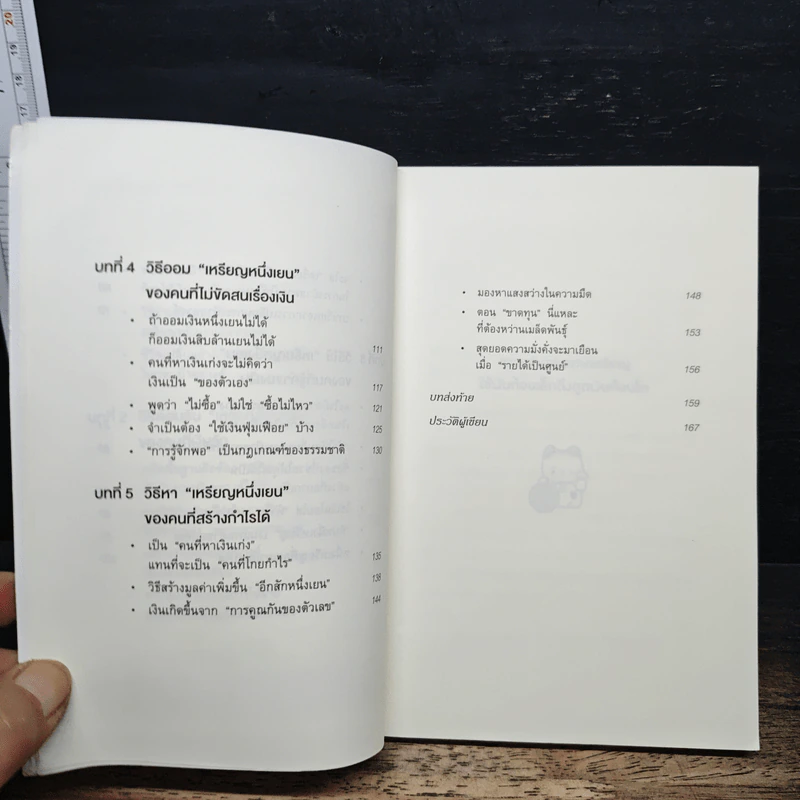 บทที่ 4 วิธีออม “เหรียญหนึ่งเยน”
ของคนที่ไม่ขัดสนเรื่องเงิน
• ถ้าออมเงินหนึ่งเยนไม่ได้
ก็ออมเงินสิบล้านเยนไม่ได้ 111
• คนที่หาเงินเก่งจะไม่คิดว่า
เงินเป็น “ของตัวเอง” 117
• พูดว่า “ไม่ซื้อ” ไม่ใช่ “ซื้อไม่ไหว” 121
• จำเป็นต้อง “ใช้เงินฟุ่มเฟือย” บ้าง 125
• “การรู้จักพอ” เป็นกฎเกณฑ์ของธรรมชาติ 130
บทที่ 5 วิธีหา “เหรียญหนึ่งเยน”
ของคนที่สร้างกำไรได้
• เป็น “คนที่หาเงินเก่ง”
แทนที่จะเป็น “คนที่โกยกำไร” 135
• วิธีสร้างมูลค่าเพิ่มขึ้น “อีกสักหนึ่งเยน” 138
• เงินเกิดขึ้นจาก “การคูณกันของตัวเลข” 144
• มองหาแสงสว่างในความมืด 148
• ตอน “ขาดทุน” นี่แหละ
ที่ต้องหว่านเมล็ดพันธุ์ 153
• สุดยอดความมั่งคั่งจะมาเยือน
เมื่อ “รายได้เป็นศูนย์” 156
บทส่งท้าย 159
ประวัติผู้เขียน 167
20
19
18
17